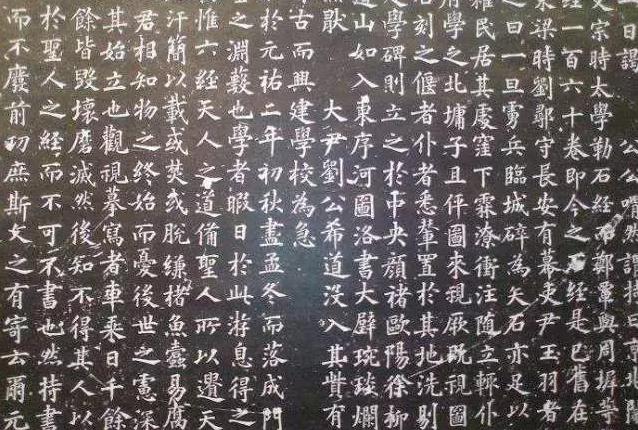 一日謁 公公喟然謂持曰京兆
文宗時太學勒石經而鄭覃與周墀等
經一百六十卷即今之石經是已舊在
東梁時劉鄩守長安有幕吏尹玉羽者
之曰一旦虜兵臨城碎為矢石亦足以
雜民居其處窪下霖潦衝注隨立輒仆
府學之北墉子且伻圖來視厥既視圖
石刻之偃者仆者悉輦置於其地洗剔
學碑則立之於中央顏褚歐陽徐柳
道山如入東序河圖洛書大璧琬琰爛
無斁 大尹劉公希道没入其貲有
古而興建學校為急
於元祐二年初秋盡孟冬而落成門
之淵藪也學者暇日於此游息得之
惟六經天人之道備聖人所以遺天
汗簡以載或焚或脫縑楮魚蠹易腐
君相知物之終始而憂後世之憲深
其始立也觀視摹寫者車乘日千餘
餘皆毀壞磨滅然後知不得其人以
於聖人之經而不可不書也然持書
而不廢前功庶斯文之有寄云爾元